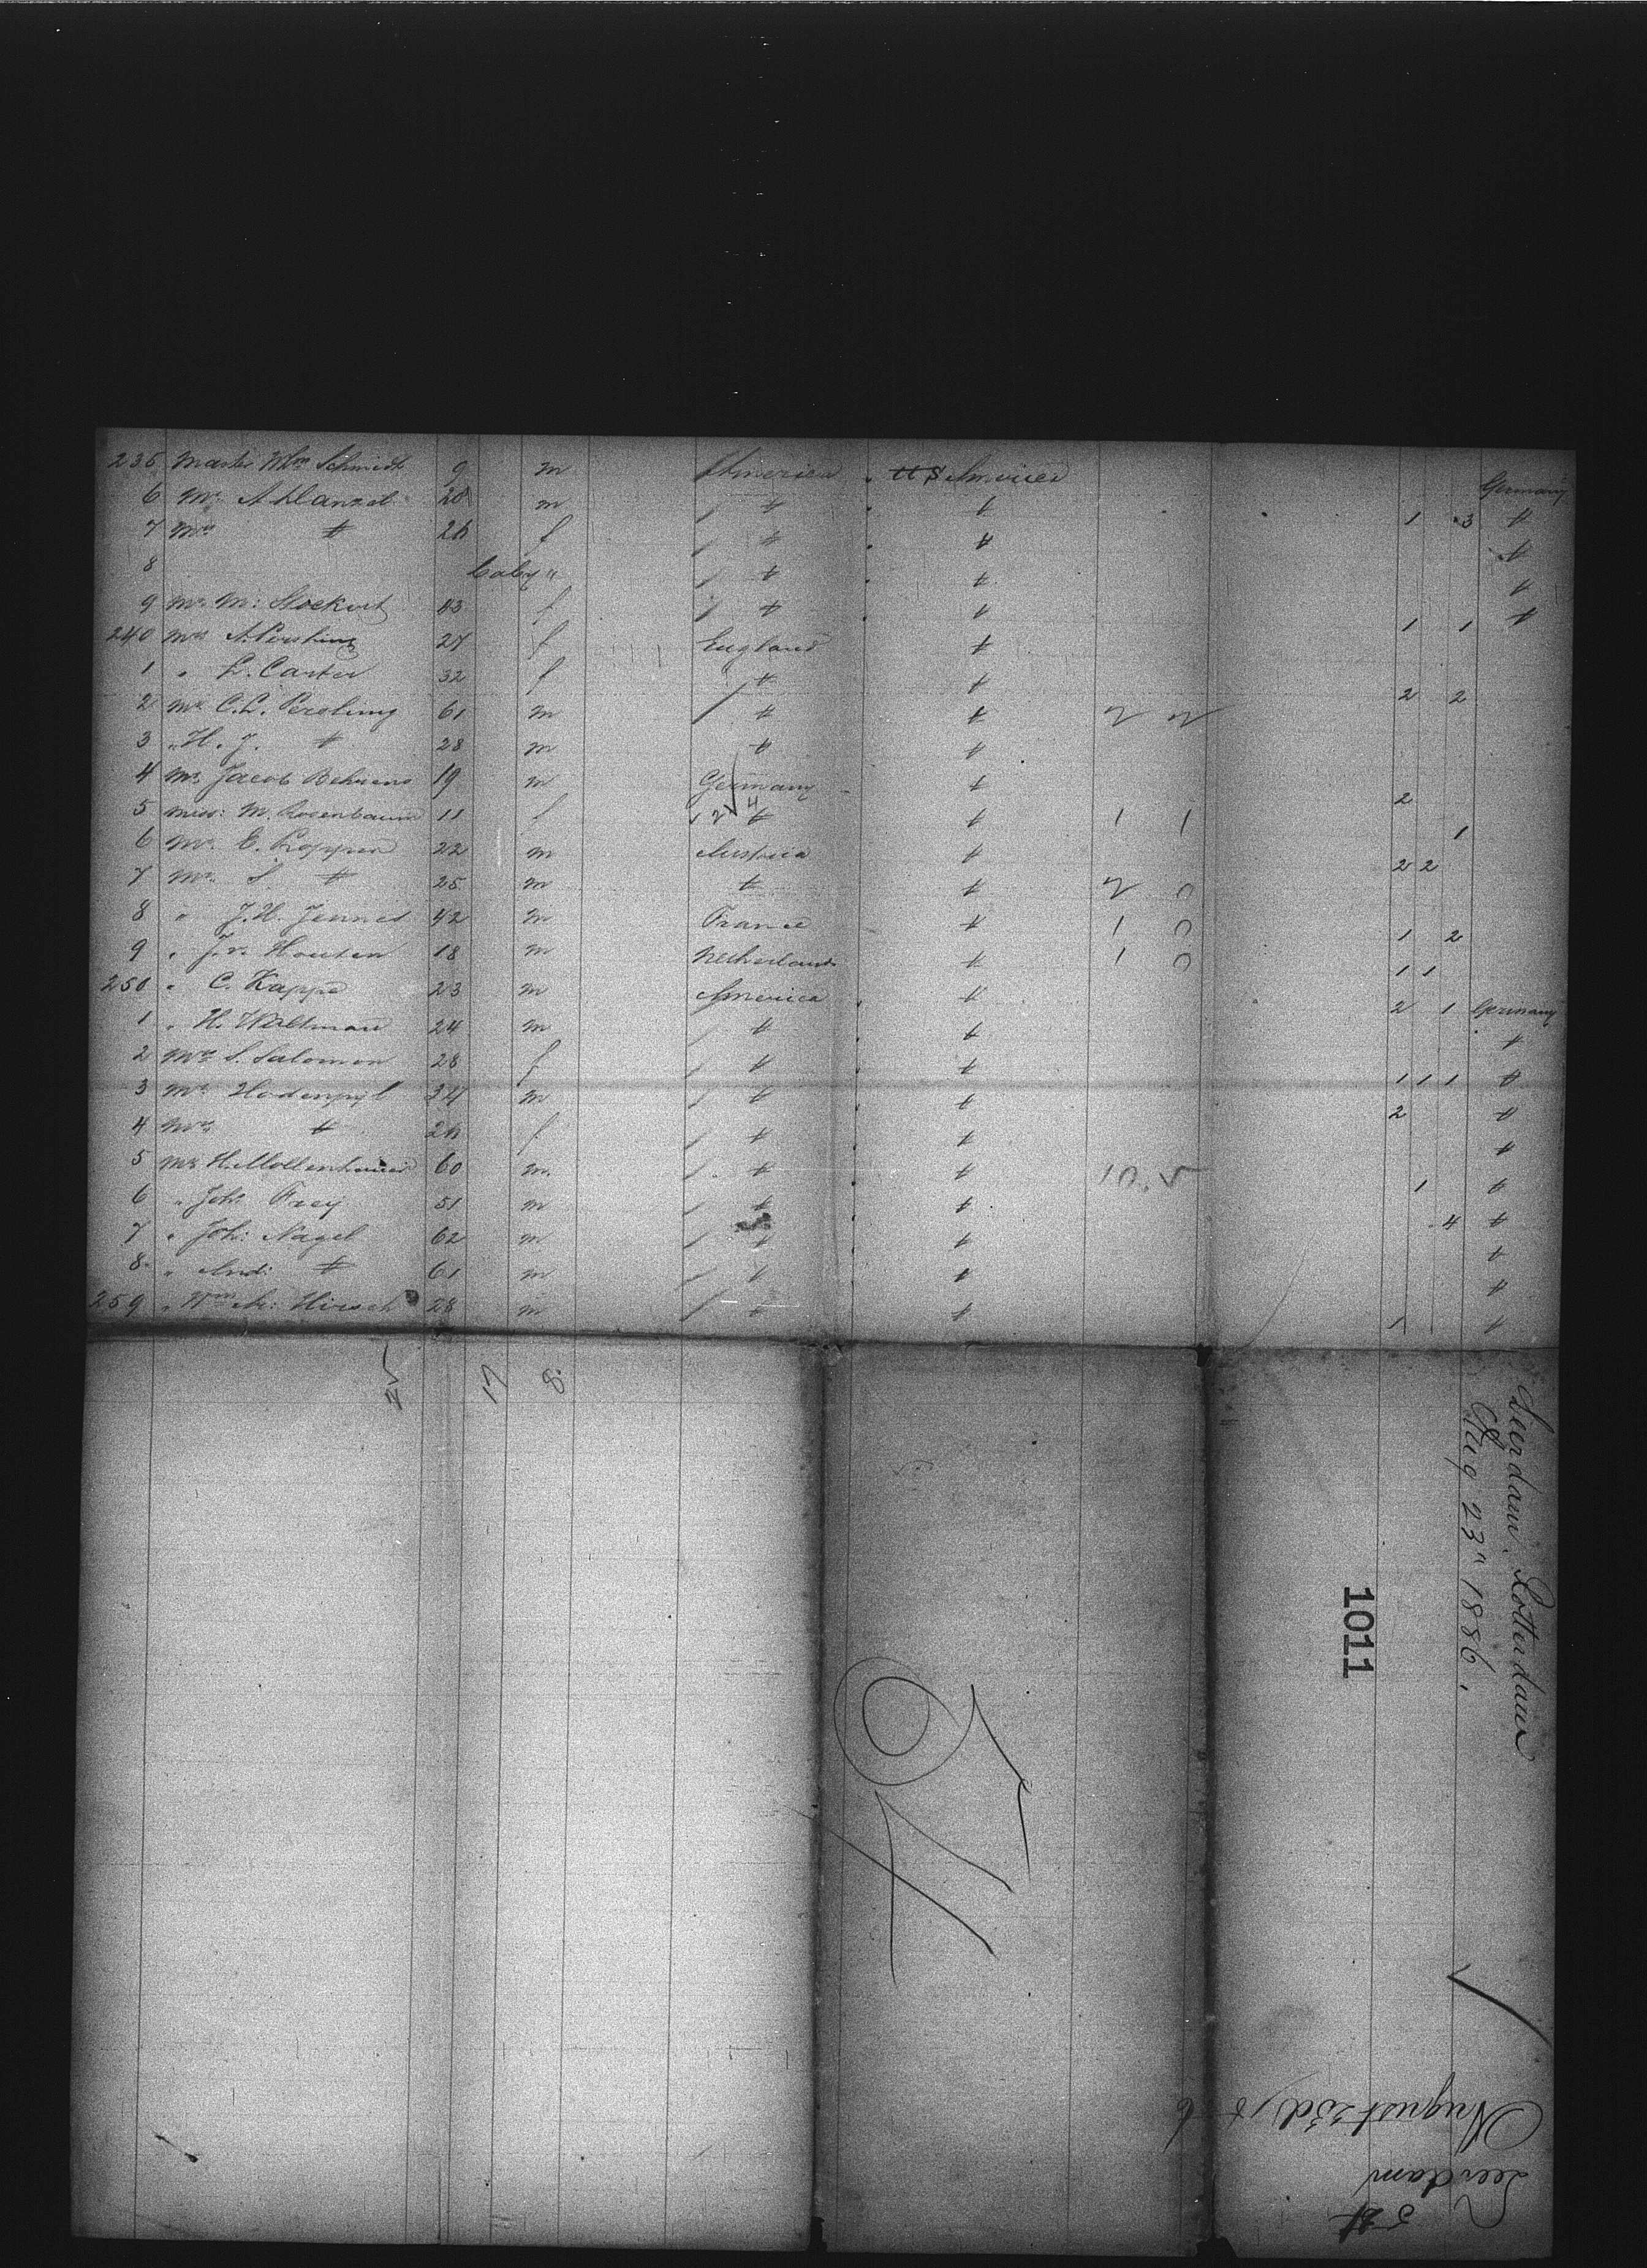 235 Master Wm Schmidt 9 m America U S America Germany
6 Mr. A. Hanzel 28 m 〃 〃 1 3 〃
7 Mrs 〃 26 f 〃 〃 〃
8 baby " 〃 〃 〃
9 Mrs M: Stockert 43 f 〃 〃 1 1 〃
240 Mrs A. Pershing 27 f England 〃
1 " L. Carter 32 f 〃 〃 2 2
2 Mr C.L. Pershing 61 m 〃 〃 2 2
3 " H. J. 〃 28 m 〃 〃
4 Mr. Jacob Behrens 19 m Germany 〃 2
5 Miss: M. Rosenbaum 11 f 〃 〃 1 1 1
6 Mr. E. 22 m Austria 〃 2 2
7 Mr. S. 〃 25 m 〃 〃 2 0
8 " J.H. 42 m France 〃 1 0 1 2
9 " J. v. Houten 18 m Netherland 〃 1 0 1 1
250 " C. Kappe 23 m America 〃 2 1 Germany
1 " H. Waltman 24 m 〃 〃 〃
2 Mrs S. Salomon 28 f 〃 〃 1 1 1 〃
3 Mr. Hodenpyl 34 m 〃 〃 2 〃
4 Mrs 〃 26 f 〃 〃 〃
5 Mr H. Mollenhauer 60 m. 〃 〃 1 〃
6 " Joh: Frey 51 m 〃 〃 4 〃
7 " Joh: Nagel 62 m 〃 〃 〃
8 " And: 〃 61 m 〃 〃 〃
259 " Wm A: Hirsch 28 m 〃 〃 1 〃
17 8
Leerdam. Rotterdam
Aug 23" 1886.
1011
Leerdam
August 23d